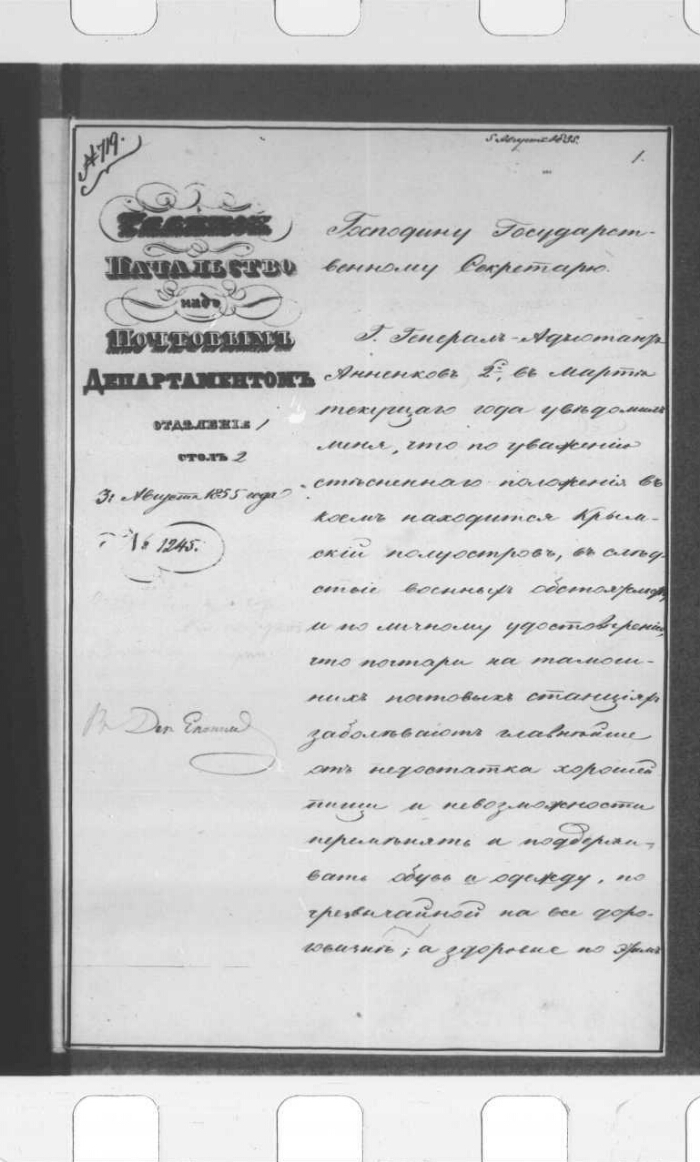 № 719.
5 Августа 1855.
1.
ГЛАВНОЕ
НАЧАЛЬСТВО
надъ
ПОЧТОВЫМЪ
ДЕПАРТАМЕНТОМЪ
ОТДѢЛЕНІЕ 1
СТОЛЪ 2
Августа 1855 года
№ 1245.
Господину Государст-
венному Секретарю.
Г. Генералъ-Адъютантъ
Анненковъ 2й, въ Мартѣ
текущаго года увѣдомилъ
меня, что по уваженію
стѣсненнаго положенія въ
коемъ находится Крым-
скій полуостровъ, въ слѣд-
ствіе военныхъ обстоятельствъ,
и по личному удостовѣренію,
что почтари на тамош-
нихъ почтовыхъ станціяхъ
заболѣваютъ главнѣйше
отъ недостатка хорошей
пищи и невозможности
перемѣнять и поддержи-
вать обувь и одежду, по
чрезвычайной на все доро-
говизнѣ; а здоровые по
Въ Деп. Экономіи